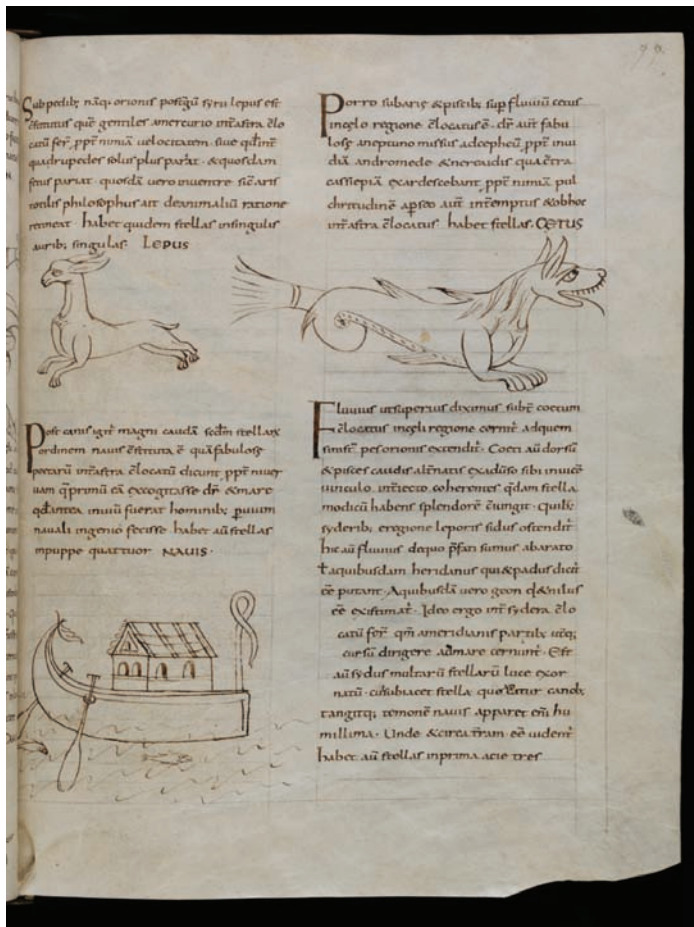 Sub pedib; nāq; orionis post̄gū syrii lepus est
c̄stitutus quē gentiles amercurio int̄ astra c̄lo
catū fer̄, ppt̄ nimiā velocitatem. siue qd̄ int̄
quadrupedes solus plus pariat. & quosdam
fetus pariat. quosdā vero inventre sic̄ aris
totilis philosophus ait deanimaliū ratione
retineat. habet quidem stellas insingulis
aurib; singulas. LEPUS
Post canis igit̄ magni caudā scdm̄ stellarꝝ
ordinem navis c̄stituta ē quā fabulosꝫ
poetarū int̄ astra c̄locatū dicunt, ppt̄ miner
uam q̄ primū eā excogitasse dr̄ & mare
qd̄ antea inuiū fuerat hominib; puium
nauali ingenio fecisse. habet aū stellas
inpuppe quattuor NAUIS.
Porro subaris & piscib; sup fluuiū cetus
incęlo regione c̄locatus ē. dr̄ aut̄ fabu
losꝫ aneptuno missus adcepheū ppt̄ inui
diā andromede & nereaidis quā c̄tra
cassiepiā exardescebant, ppt̄ nimiā pul
chritudinē apseo aut̄ intemptus & obhoc
int̄ astra c̄locatus habet stellas. CĘTUS
Fluuius utsuperius diximus subt̄ coetum
c̄locatus incęli regione cernit̄ adquem
sinist̄ pes orionis extendit̄. Coeti aū dorsū
& pisces caudis alt̄natis exaduso sibi inuicē
uinculo int̄iecto coherentes q̄dam stella
modicū habens splendorē c̄iungit. Quib;
syderib; eregione leporis sidus ostendit̄
hic aū fluuius dequo p̄fati sumus abarato
ł aquibusdam heridanus qui & padus dicit̄
ēē putant. Aquibusdā vero geon q & nilus
ēē existimat̄. Ideo ergo int̄ sydera c̄lo
catū fer̄ qm̄ ameridianis partib; utq;
cursū dirigere admare cernunt̄. Est
aū sydus multarū stellarū luce exor
natū. cui subiacet stella quę uocatur canob;
tangitq; temonē nauis apparet eni hu
millima. Unde & circa t̄ram ēē uident̄
habet aū stellas inprima acie tres